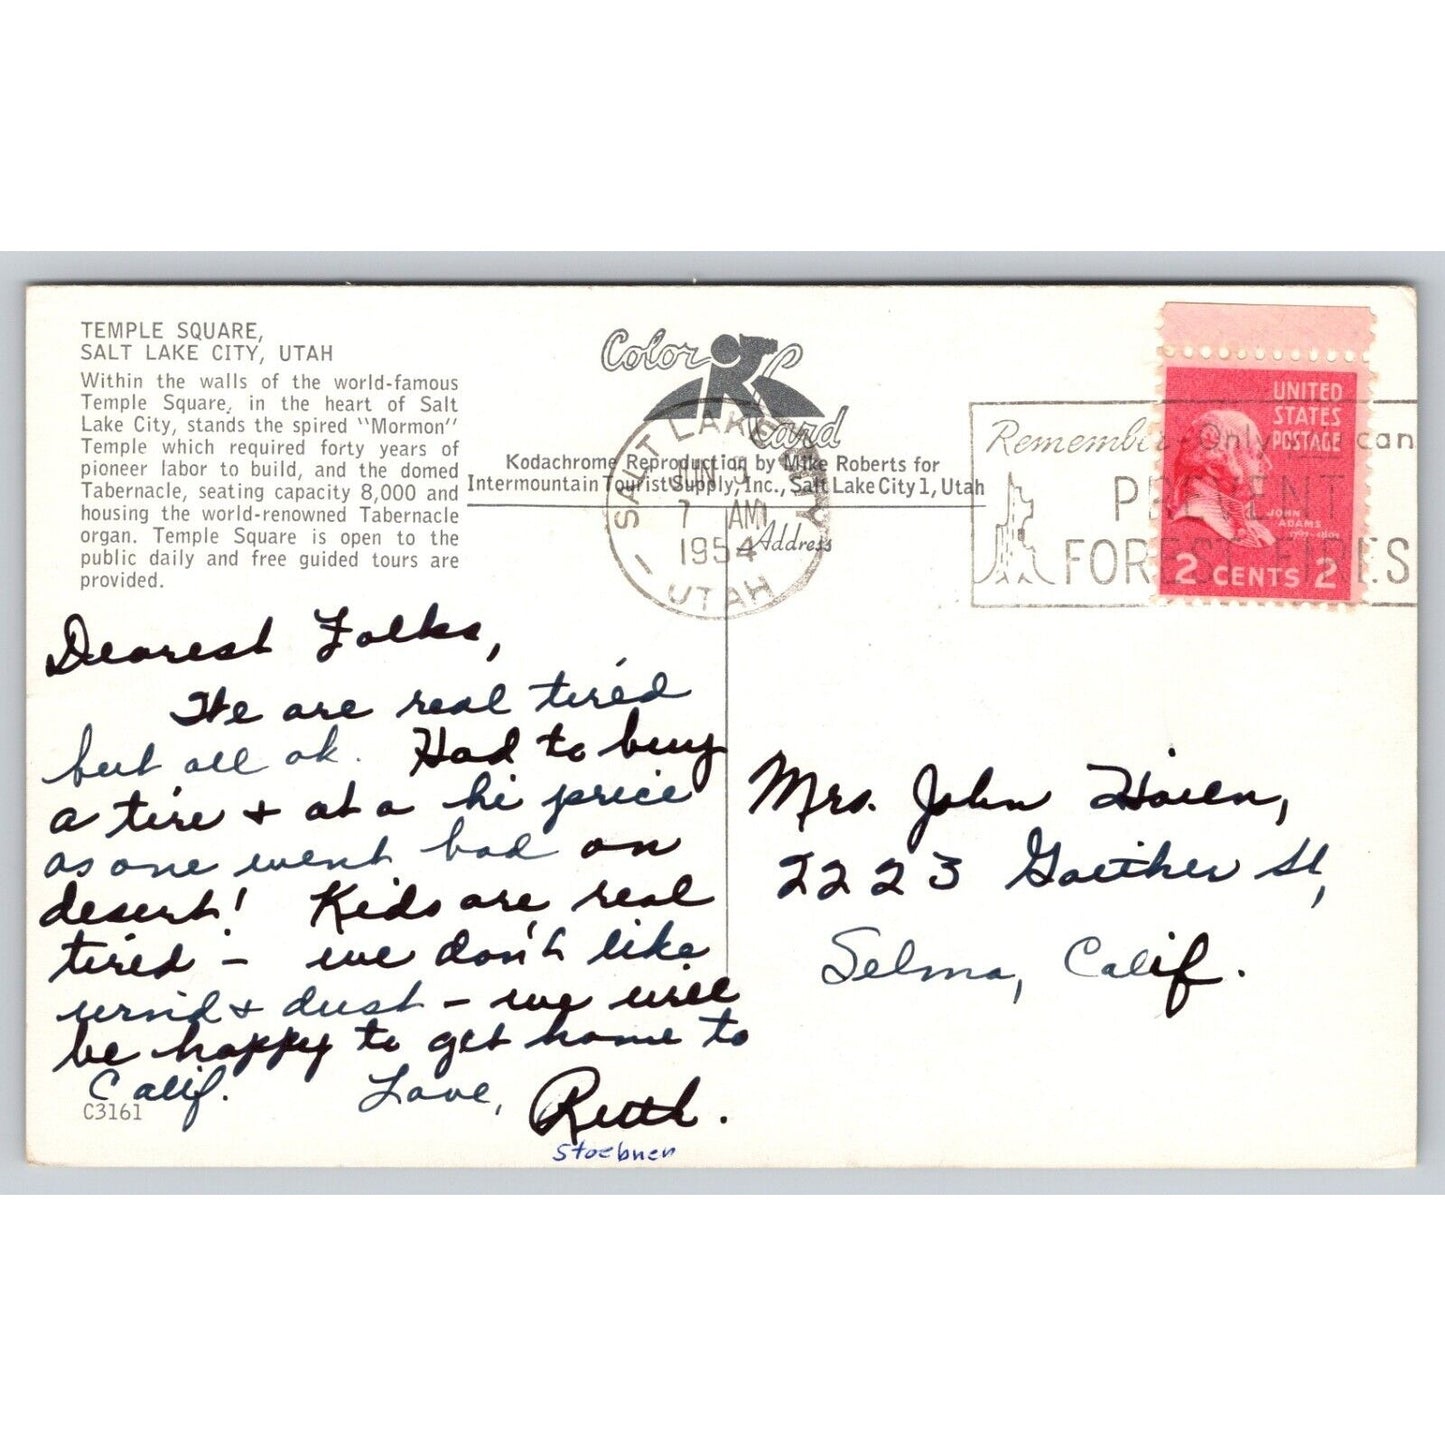 TEMPLE SQUARE,
SALT LAKE CITY, UTAH
Within the walls of the world-famous
Temple Square, in the heart of Salt
Lake City, stands the spired "Mormon"
Temple which required forty years of
pioneer labor to build, and the domed
Tabernacle, seating capacity 8,000 and
housing the world-renowned Tabernacle
organ. Temple Square is open to the
public daily and free guided tours are
provided.
Dearest Folks,
We are real tired
but all ok. Had to buy
a tire + at a hi price
as one went bad on
desert! Kids are real
tired - we don't like
wind + dust - we will
be happy to get home to
Calif. Love, Ruth.
Stoebner
C3161
Color Card
Kodachrome Reproduction by Mike Roberts for
Intermountain Tourist Supply, Inc., Salt Lake City 1, Utah
Address
SALT LAKE CITY
JUN
7 AM
1954
UTAH
Remember Only can
PREVENT
FOREST FIRES
UNITED
STATES
POSTAGE
JOHN
ADAMS
2 CENTS 2
Mrs. John
2223 St,
Selma, Calif.